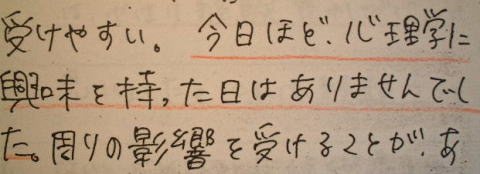 受けやすい。今日ほど、心理学に
興味を持った日はありませんでし
た。周りの影響を受けることが、あ